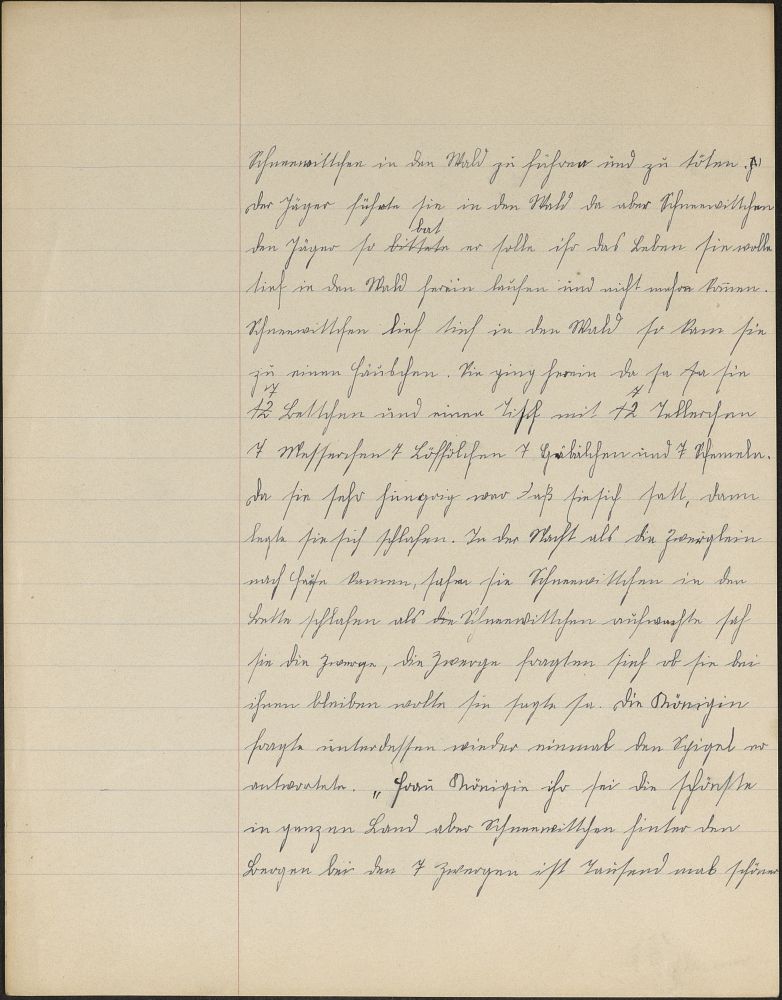 Schneewittchen in den Wald zu führen und zu töten.
Der Jäger führte sie in den Wald da aber Schneewittchen
bat
den Jäger so bittete er solle ihr das Leben sie wolle
tief in den Wald herein laufen und nicht mehre kom̅en.
Schneewittchen lief tief in den Wald so kam sie
zu einen Häubchen. Sie ging herein da sa sa sie
7 7
12 Bettchen und einen Tisch mit 12 Tellerchen
7 Messerchen 7 Löffölchen 7 Gäbälchen und 7 Schemeln.
Da sie sehr hungrig war aß sie sich satt, dann
legte sie sich schlafen. In der Nacht als die Zwerglein
nach Hause kamen, sahen sie Schneewittchen in den
Bette schlafen als die Schneewittchen aufwachte sah
sie die Zwerge, die Zwerge fragten sieh ob sie bei
ihnen bleiben wollte sie sagte ja. Die Königin
fragte unterdessen wieder einmal den Spigel er
antwortete. „Frau Königin ihr sei die schönste
in ganzen Land aber Schneewittchen hinter den
Bergen bei den 7 Zwergen ist Tausend mal schöner